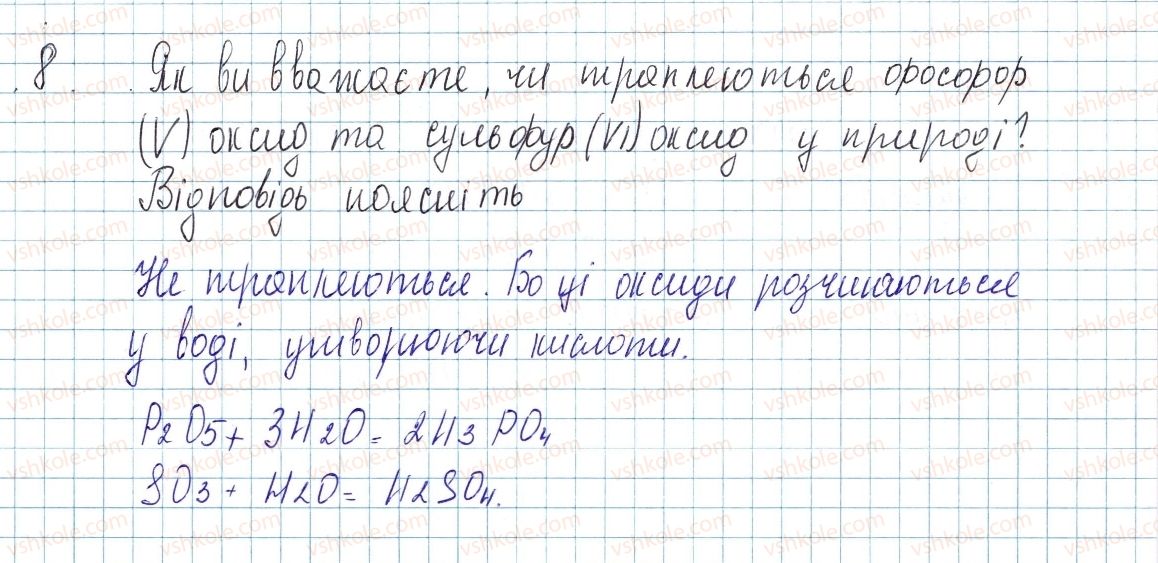 8. Як ви вважаєте, чи трапляються фосфор
(V) оксид та сульфур (VI) оксид у природі?
Відповідь поясніть
Не трапляються. Бо ці оксиди розчиняються
у воді, утворюючи кислоти.
P2O5 + 3H2O = 2H3PO4
SO3 + H2O = H2SO4.